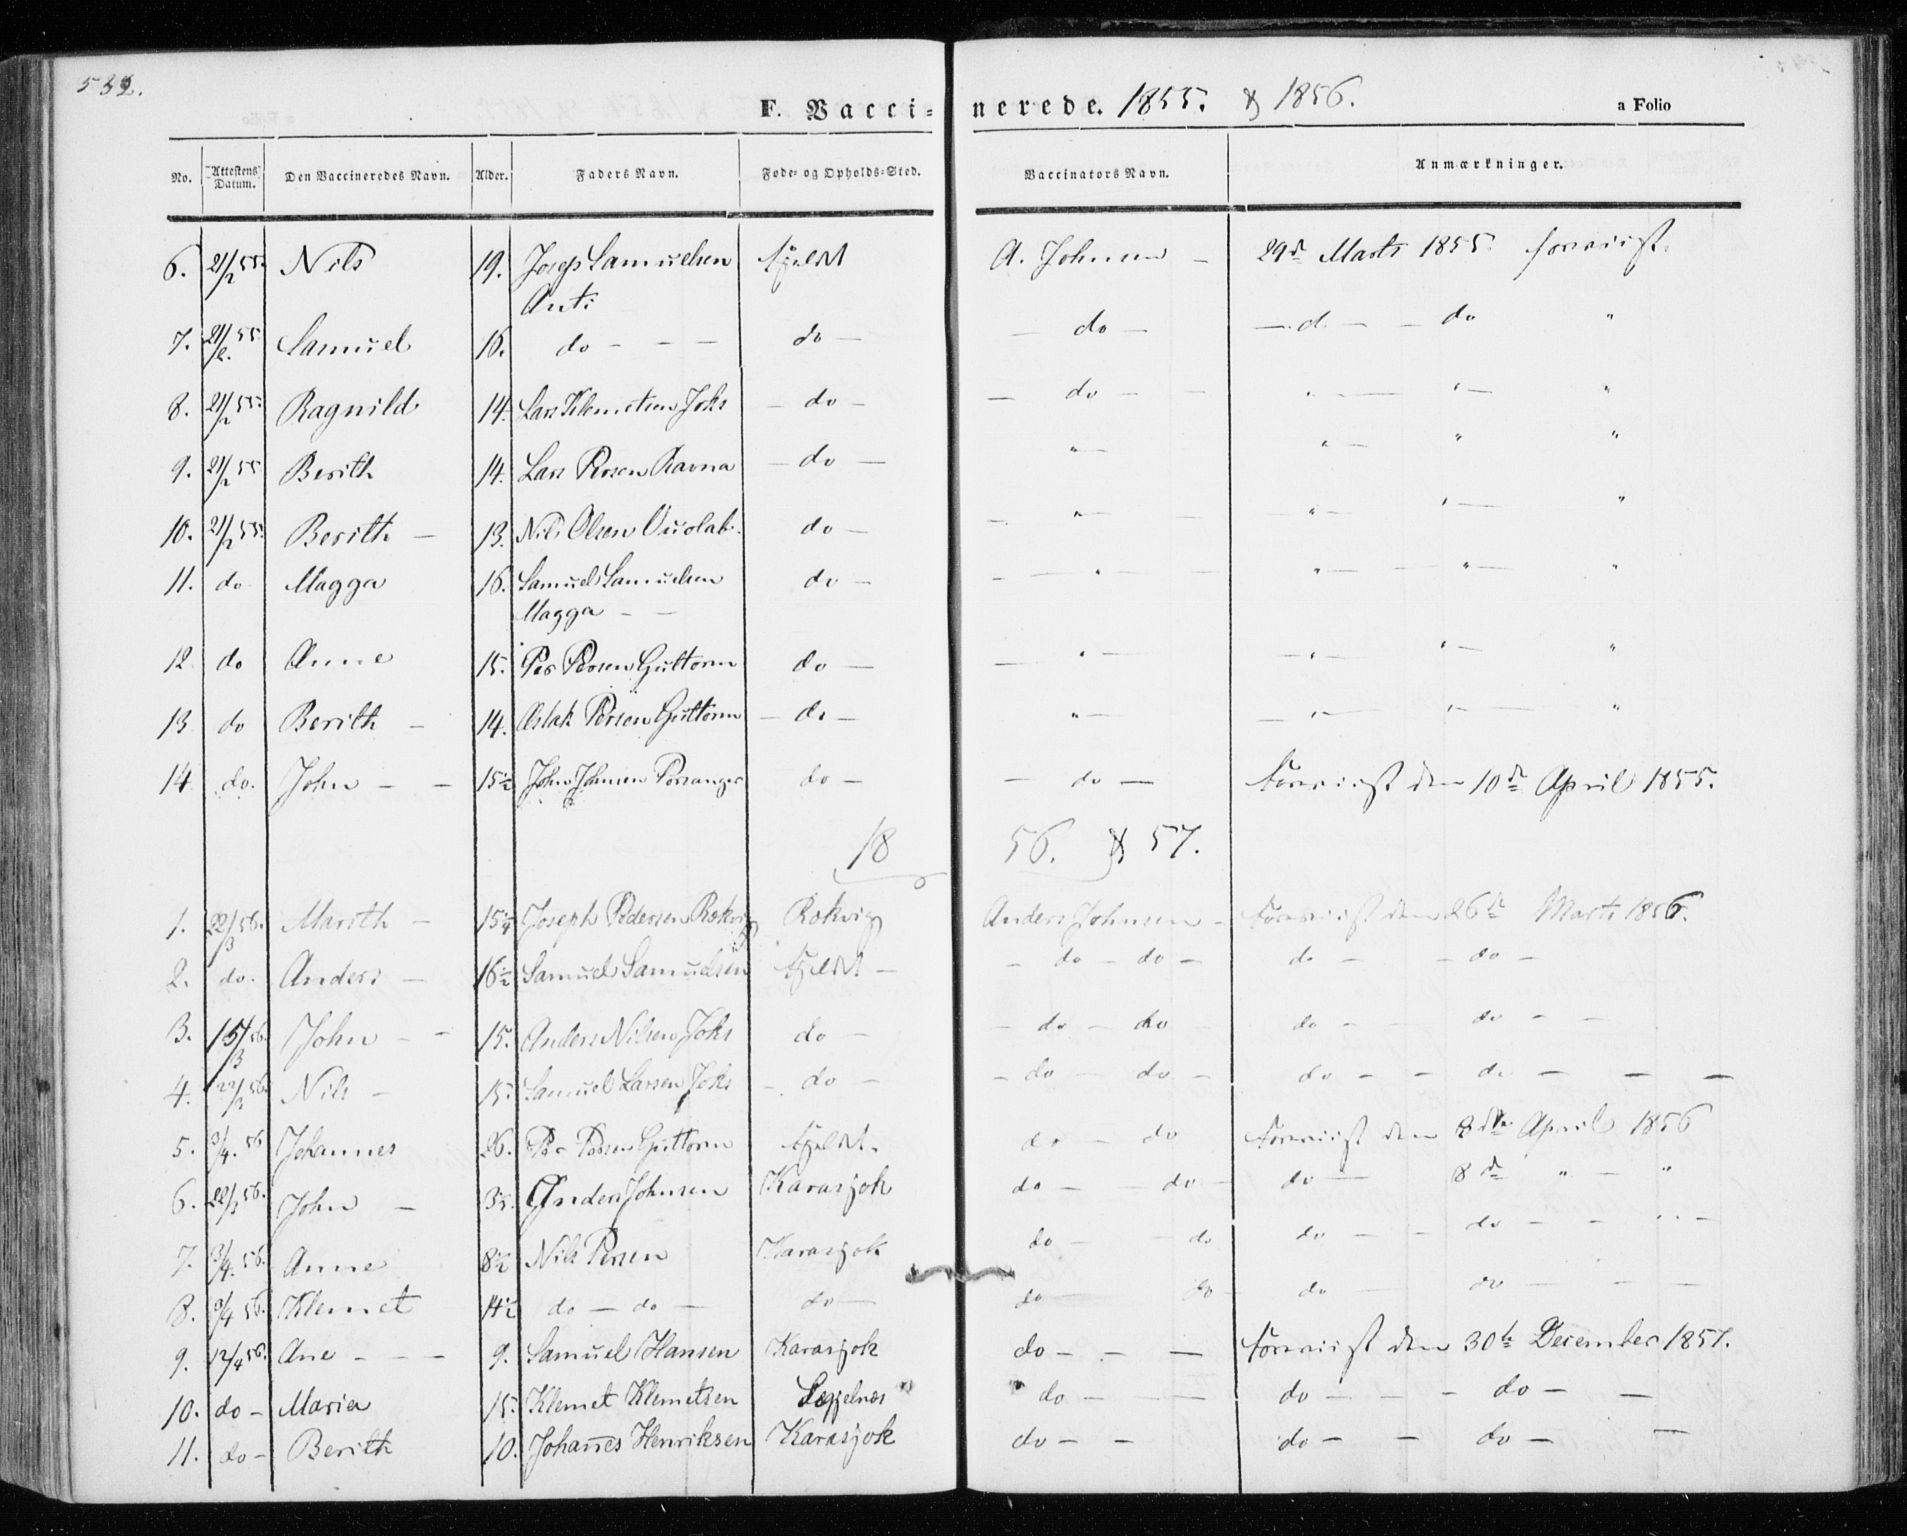 532.
F. Vaccinerede. 1855. & 1856.
a Folio
No. Attestens Datum. Den Vaccineredes Navn. Alder. Faders Navn. Føde- og Opholds-Sted. Vaccinators Navn. Anmærkninger.
6. 21/2 55. Nils 19. Josep Samuelsen Fjeldt A. Johnsen - 29de Marts 1855. foreviist.
Anti
7. 21/2. 55 Samuel 16. do - - - do - - do - - d. - - do "
8. 21/2 55. Ragnild 14. Lars Klemetsen Joks - do - - do - - " - " - "
9. 21/2 55 Berith 14. Lars Persen Ravna - do - " - " - " "
10. 21/2 55. Berith - 13. Nils Olsen Ouolab. do - - " - - " - " - "
11. do Magga 16. Samuel Samuelsen do - - - " - - " - - " - "
Magga - -
12 do Anne 15. Per Persen Guttorm do - - " - - " - " - "
13 do Berith - 14. Aslak Persen Guttorm - do - " - - " - " - "
14 do. John - - 15 1/2 John Johnsen Porsanger do - - do - Foreviist den 10de April 1855.
18 56. & 57.
1. 22/3 56. Marith - 15 1/4 Joseph Pedersen Rokvig Rokvig Anders Johnsen - Foreviist den 26de Marts 1856.
2. do. Anders - 16 1/2 Samuel Samuelsen Fjeldt - - do - do - do - - do -
3. 15/3 56. John - - 15. Anders Nilsen Joks do - - do - do do - - do - -
4. 22/3 56. Nils - 15. Samuel Larsen Joks - do - - do - do - do - - do - - -
5. 3/4. 56 Johannes 26. Per Persen Guttorm Fjeldt. do - do Foreviist den 8de April 1856
6. 22/3 56. John - 35. Anders Johnsen Karasjok do - - do - do - 8de " - "
7. 3/4. 56. Anne 8 1/2 Nils Persen Karasjok do - - do do - - do - - -
8. 3/4 56. Klemet 14 1/2 do - do - do - do - do do - do - - -
9. 12/4 56. Ane - - - 9. Samuel Hansen Karasjok do - - - Foreviist den 30te December 1857.
10. do - Maria 15. Klemet Klemetsen do - - - do - - - do - -
11. do - Berith 10. Johanes Henriksen Karasjok do - - do - - do - -